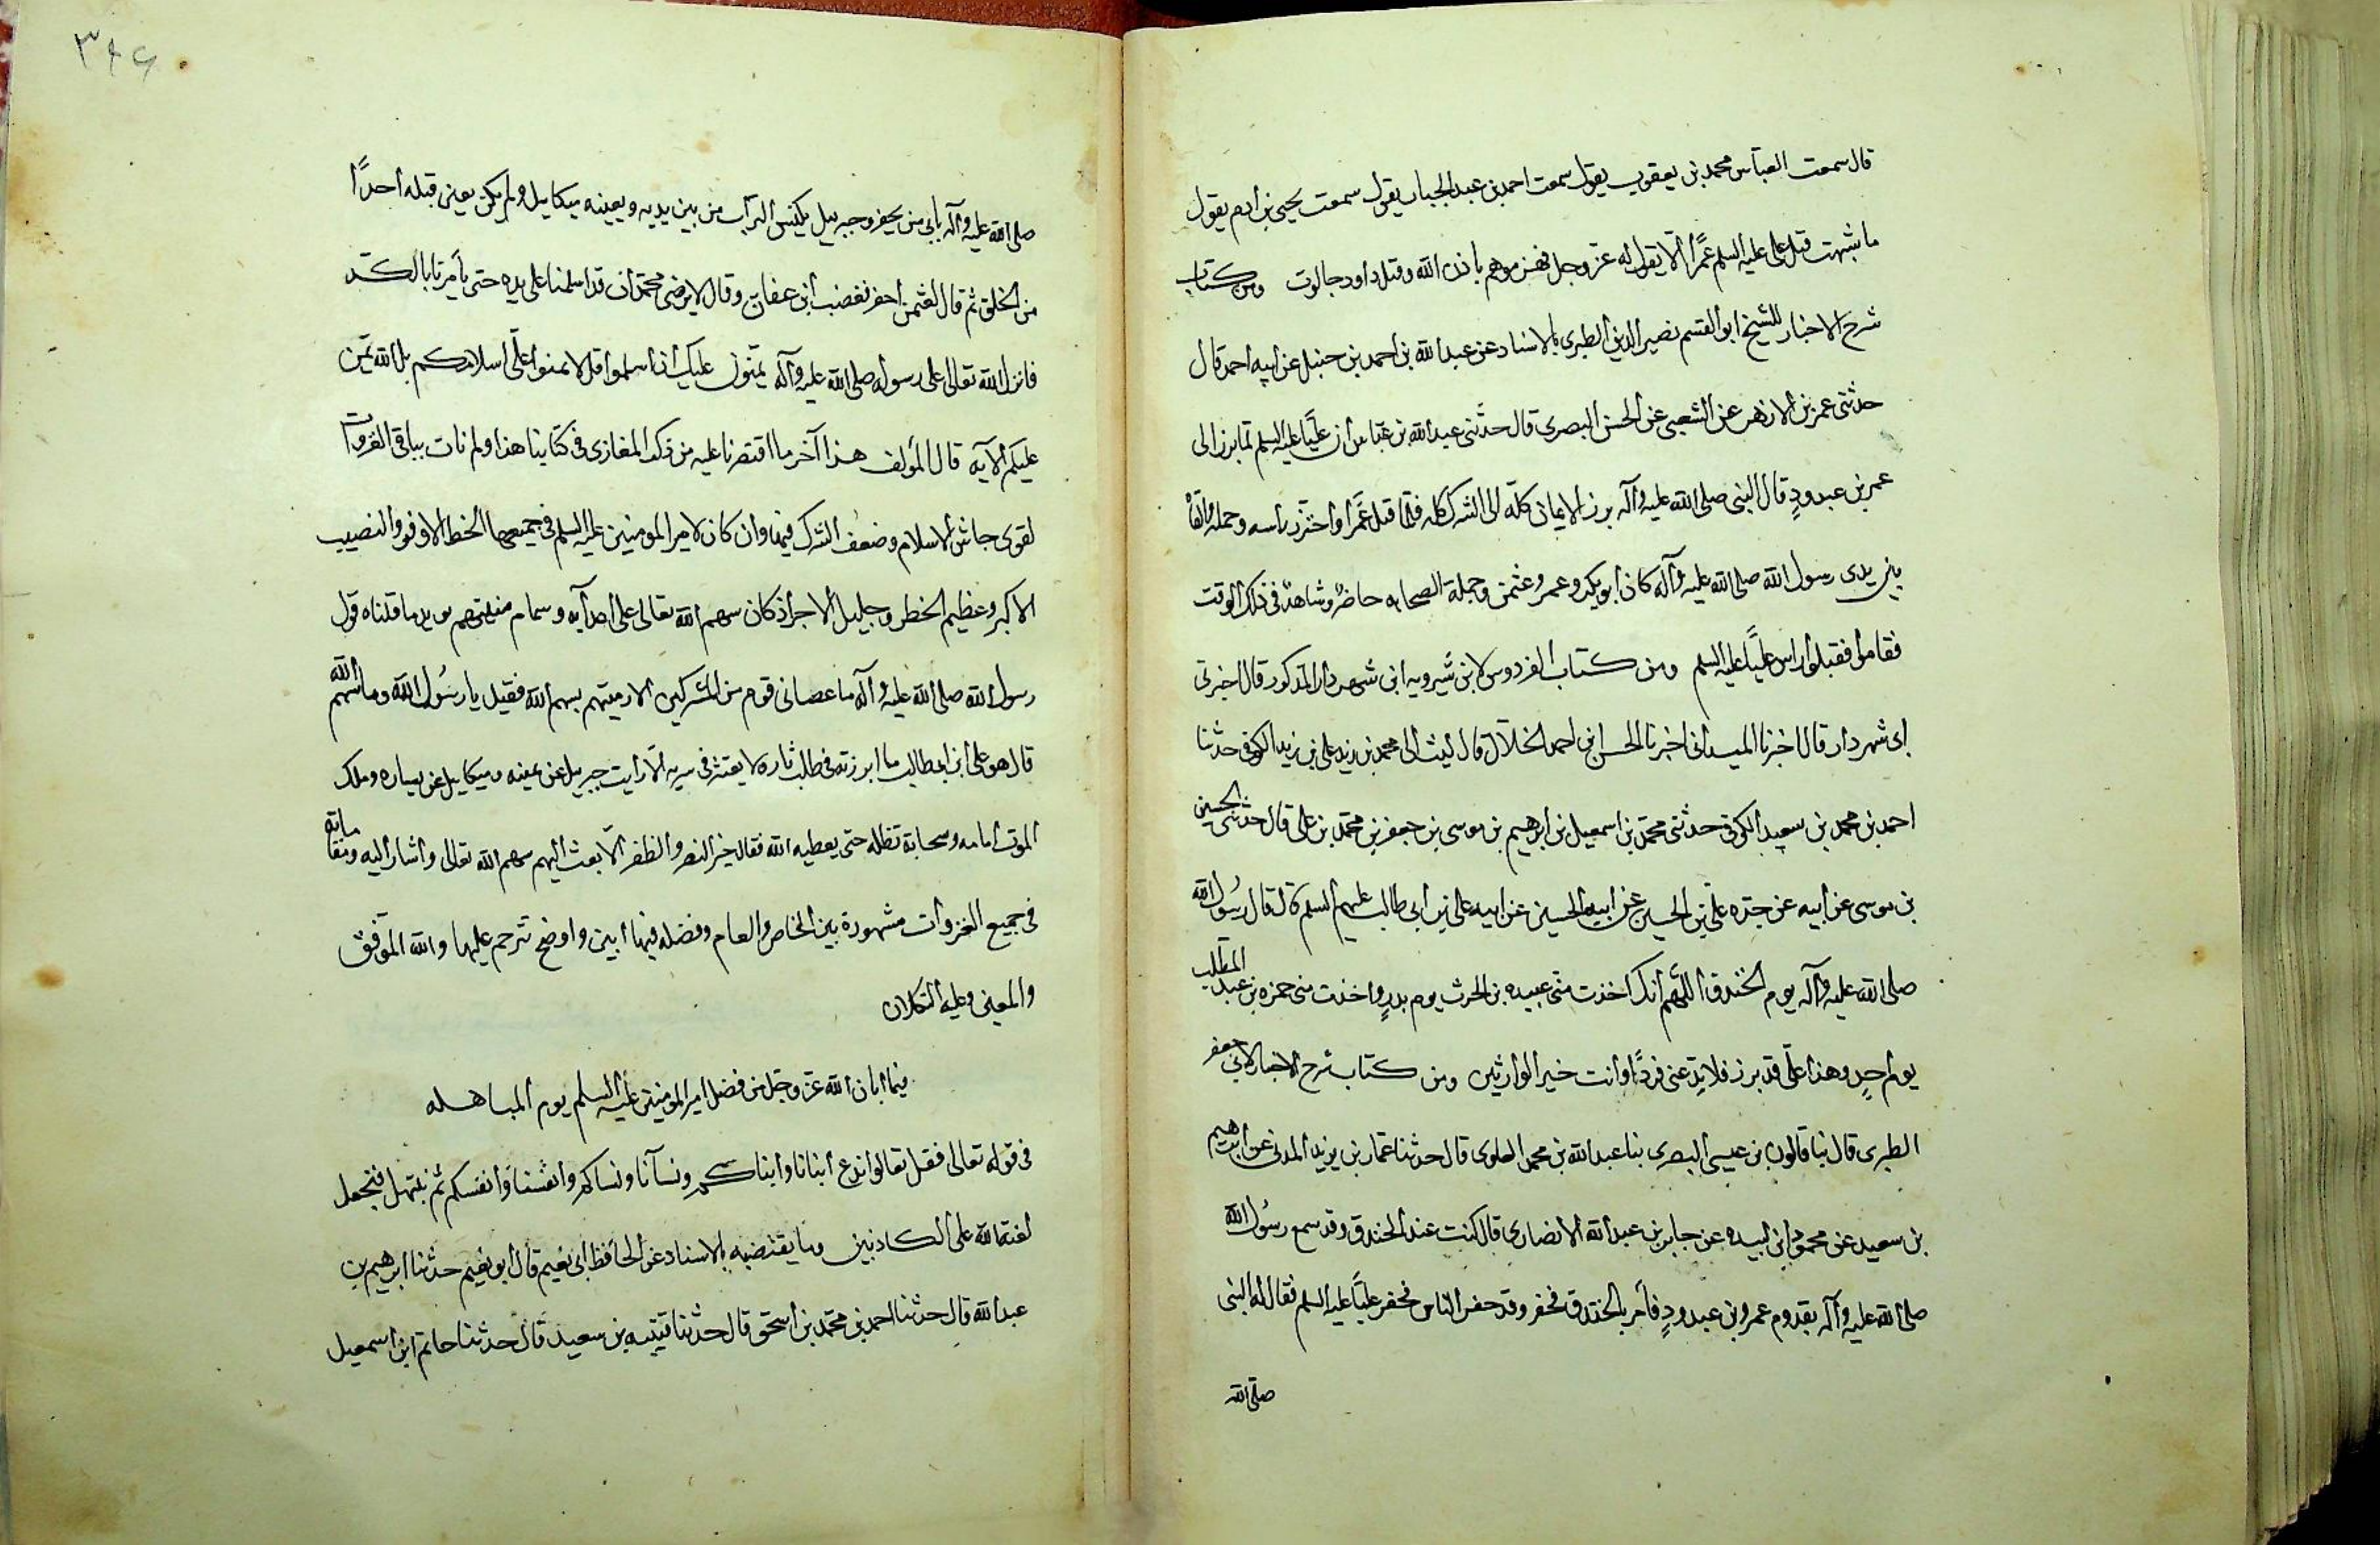 قال سمعت العباس محمد بن يعقوب يقول سمعت احمد بن عبد الجبار يقول سمعت يحيى بن ادم يقول
ما شبهت قتل على عليه السلم عمرًا الّا بقوله عز وجل فهزموهم باذن الله وقتل داود جالوت ومن كتاب
شرح الاخبار للشيخ ابو القسم نصير الدين الطبرى بالاسناد عن عبد الله بن احمد بن حنبل عن ابيه احمد قال
حدثنى عمر بن الازهر عن الشعبى عن الحسن البصرى قال حدّثنى عبد الله بن عبّاس ان عليًّا عليه السلم لمّا برز الى
عمر بن عبدودٍ قال النبى صلى الله عليه وآله برز الايمان كلّه الى الشرك كله فلمّا قتل عَمرًا واحتزّ راسه وحمله والقاه
بين يدى رسول الله صلى الله عليه وآله كان ابو بكر وعمر وعثمن وجملة الصحابه حاضرٌ وشاهدٌ فى ذلك الوقت
فقاموا فقبلوا راس عليًّا عليه السلم ومن كتاب الفردوس لابن شيرويه ابن شهردار المذكور قال اخبرنى
ابى شهردار قال اخبرنا الميدانى اخبرنا الحسن ابن احمد الخلال قال ليث الى محمد بن زيد على بن زيد الكوفى حدثنا
احمد بن محمد بن سعيد الكوفى حدثنى محمّد بن اسمعيل بن ابرهيم بن موسى بن جعفر بن محمّد بن على قال حدثنى الحسين
بن موسى عن ابيه عن جدّه علىّ بن الحسين عن ابيه الحسين عن ابيه على بن ابى طالب عليهم السلم قال قال رسُول الله
صلى الله عليه وآله يوم الخندق اللّهم انك اخذت منّى عبيده بن الحرث يوم بدرٍ واخذت منى حمزه بن عبد المطّلب
يوم احدٍ وهذا علىّ قد برز فلا تدعنى فردًا وانت خير الوارثين ومن كتاب شرح الاخبار لابى جعفر
الطبرى قال نبا قالون بن عيسى البصرى بنا عبد الله بن محمد العلوى قال حدثنا عمار بن يزيد المدنى عن ابرهيم
بن سعيد عن محمود ابن لبيده عن جابر بن عبد الله الانصارى قال كنت عند الخندق وقد سمع رسُول الله
صلى الله عليه وآله بقدوم عمرو بن عبدودٍ فأمر بالخندق فحفر وقد حفر الناس فحفر عليًّا عليه السلم فقال له النبى
صلى الله
٣٤٦
صلى الله عليه وآله بابى من يحفر وجبرييل يكنس التراب من بين يديه ويعينه ميكاييل ولم يكن يعين قبله احدًا
من الخلق ثم قال لعثمن احفر فغضب ابن عفان وقال لا يرضى محمّد ان قد اسلمنا على يده حتى يأمرنا بالكدّ
فانزل الله تعالى على رسوله صلى الله عليه وآله يمنّون عليك ان اسلموا قل لا تمنوا علىّ اسلامكم بل الله يمّن
عليكم الآيه قال المؤلف هذا آخر ما اقتصرنا عليه من ذكر المغازى فى كتابنا هذا ولم نات بباقى الغزوات
لقوى جاش الاسلام وضعف الشرك فيها وان كان لامير المومنين عليه السلم فى جميعها الحظ الاوفر والنصيب
الاكبر وعظيم الخطر وجليل الاجر اذ كان سهم الله تعالى على اعدآيه وسمام منيتهم يويد ما قلناه قول
رسول الله صلى الله عليه وآله ما عصانى قوم من المشركين الا رميتهم بسهم الله فقيل يا رسُول الله وما سهم الله
قال هو على ابن ابى طالب ما ابرزته فى طلب ثاره لا بعثته فى سريه الّا رايت جبرييل عن يمينه وميكاييل عن يساره وملك
الموت امامه وسحابة تظله حتى يعطيه الله فقال خير النصر والظفر الّا بعث اليهم سهم الله تعالى واشار اليه ومقاماته
فى جميع الغزوات مشهورة بين الخاص والعام وفضله فيها ابين واوضح ترحم عليها والله الموّفق
والمعين وعليه التكلان
فيما ابان الله عزّ وجل من فضل امير المومنين عليه السلم يوم المباهله
فى قوله تعالى فقل تعالوا ندع ابنانا وابناكم ونسآنا ونساكم وانفسنا وانفسكم ثم نبتهل فنجعل
لعنة الله على الكاذبين وما يقتضيه بالاسناد عن الحافظ ابى نعيم قال ابو نعيم حدثنا ابرهيم بن
عبد الله قال حدثنا احمد بن محمّد بن اسحق قال حدثنا قتيبه بن سعيد قال حدثنا حاتم ابن اسمعيل